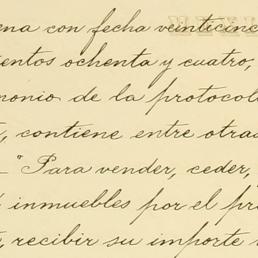 ena con fecha veinticinc
entos ochenta y cuatro,
monio de la protocol
, contiene entre otra
"Para vender, ceder,
inmuebles por el pr
, recibir su importe